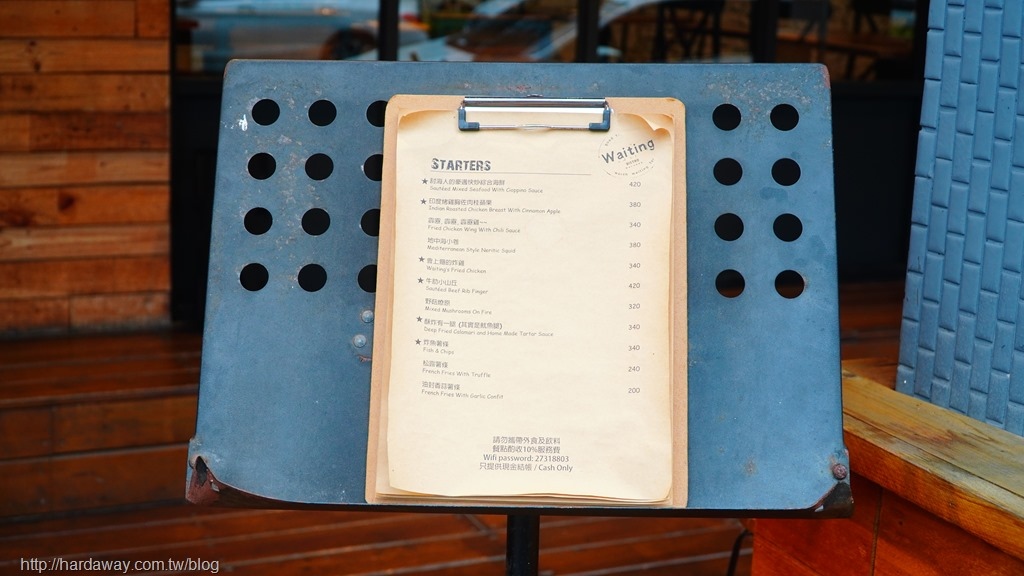 Waiting
STARTERS
★ 討海人的豪邁快炒綜合海鮮 420
Sautéed Mixed Seafood With Cioppino Sauce
★ 印度烤雞胸佐肉桂蘋果 380
Indian Roasted Chicken Breast With Cinnamon Apple
霹靂, 霹靂, 霹靂雞~~ 340
Fried Chicken Wing With Chili Sauce
地中海小卷 380
Mediterranean Style Neritic Squid
★ 會上癮的炸雞 340
Waiting's Fried Chicken
★ 牛肋小山丘 420
Sautéed Beef Rib Finger
野菇燎原 320
Mixed Mushrooms On Fire
★ 酥炸有一腿 (其實是魷魚腿) 340
Deep Fried Calamari and Home Made Tartar Sauce
★ 炸魚薯條 340
Fish & Chips
松露薯條 240
French Fries With Truffle
油封香蒜薯條 200
French Fries With Garlic Confit
請勿攜帶外食及飲料
餐點酌收10%服務費
Wifi password: 27318803
只提供現金結帳 / Cash Only
http://hardaway.com.tw/blog